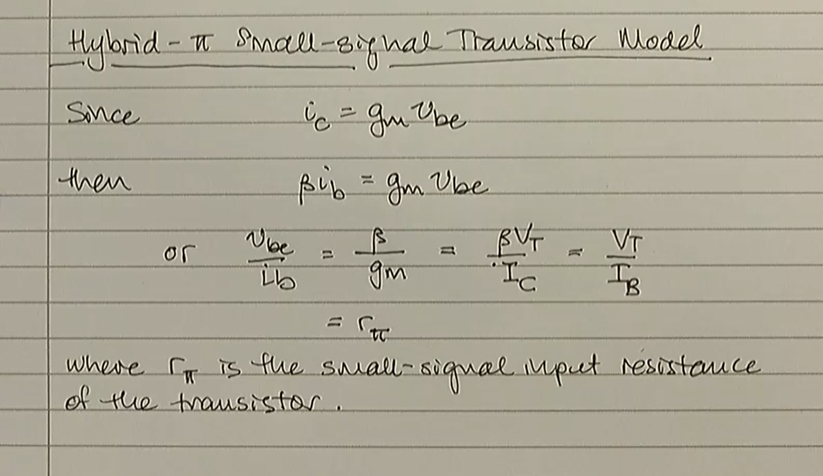 Hybrid-π Small-signal Transistor Model
Since i_c = g_m v_be
then β i_b = g_m v_be
or v_be/i_b = β/g_m = βV_T/I_C = V_T/I_B
= r_π
where r_π is the small-signal input resistance
of the transistor.